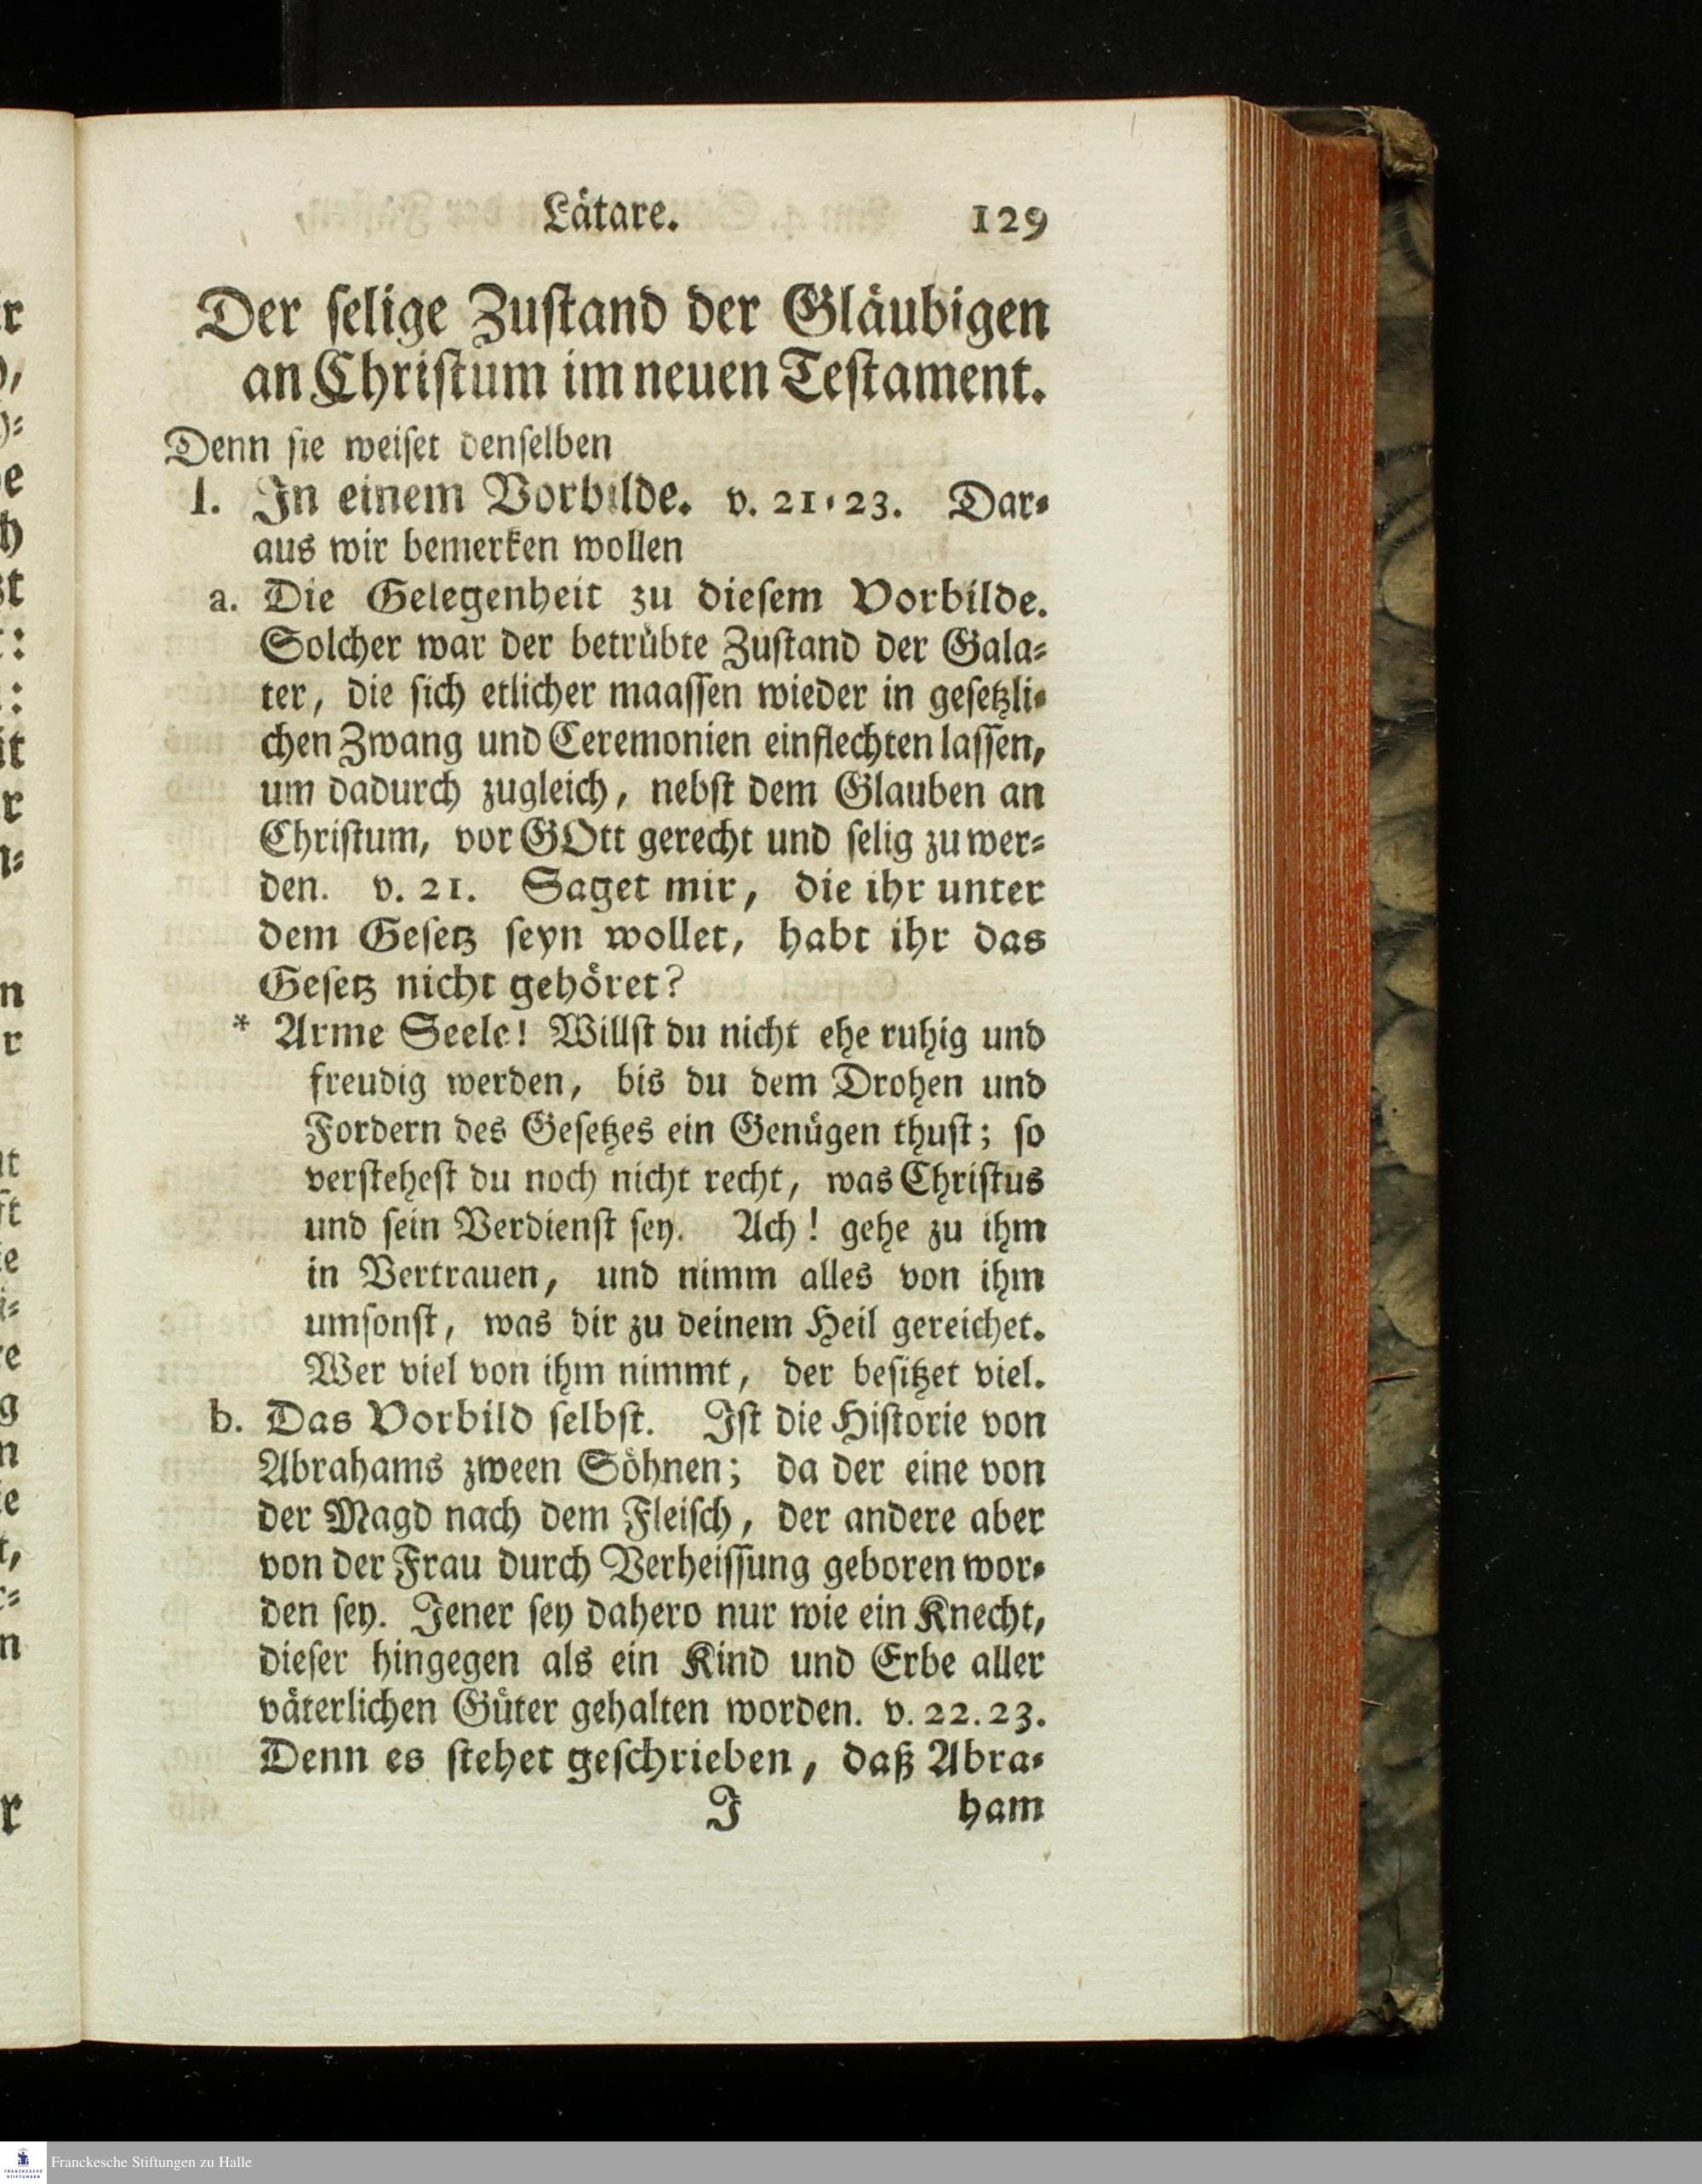 Lätare. 129
Der selige Zustand der Gläubigen
an Christum im neuen Testament.
Denn sie weiset denselben
I. In einem Vorbilde. v. 21-23. Dar-
aus wir bemerken wollen
a. Die Gelegenheit zu diesem Vorbilde.
Solcher war der betrübte Zustand der Gala-
ter, die sich etlicher maassen wieder in gesetzli-
chen Zwang und Ceremonien einflechten lassen,
um dadurch zugleich, nebst dem Glauben an
Christum, vor GOtt gerecht und selig zu wer-
den. v. 21. Saget mir, die ihr unter
dem Gesetz seyn wollet, habt ihr das
Gesetz nicht gehöret?
* Arme Seele! Willst du nicht ehe ruhig und
freudig werden, bis du dem Drohen und
Fordern des Gesetzes ein Genügen thust; so
verstehest du noch nicht recht, was Christus
und sein Verdienst sey. Ach! gehe zu ihm
in Vertrauen, und nimm alles von ihm
umsonst, was dir zu deinem Heil gereichet.
Wer viel von ihm nimmt, der besitzet viel.
b. Das Vorbild selbst. Ist die Historie von
Abrahams zween Söhnen; da der eine von
der Magd nach dem Fleisch, der andere aber
von der Frau durch Verheissung geboren wor-
den sey. Jener sey dahero nur wie ein Knecht,
dieser hingegen als ein Kind und Erbe aller
väterlichen Güter gehalten worden. v. 22. 23.
Denn es stehet geschrieben, daß Abra-
J ham
Franckesche Stiftungen zu Halle